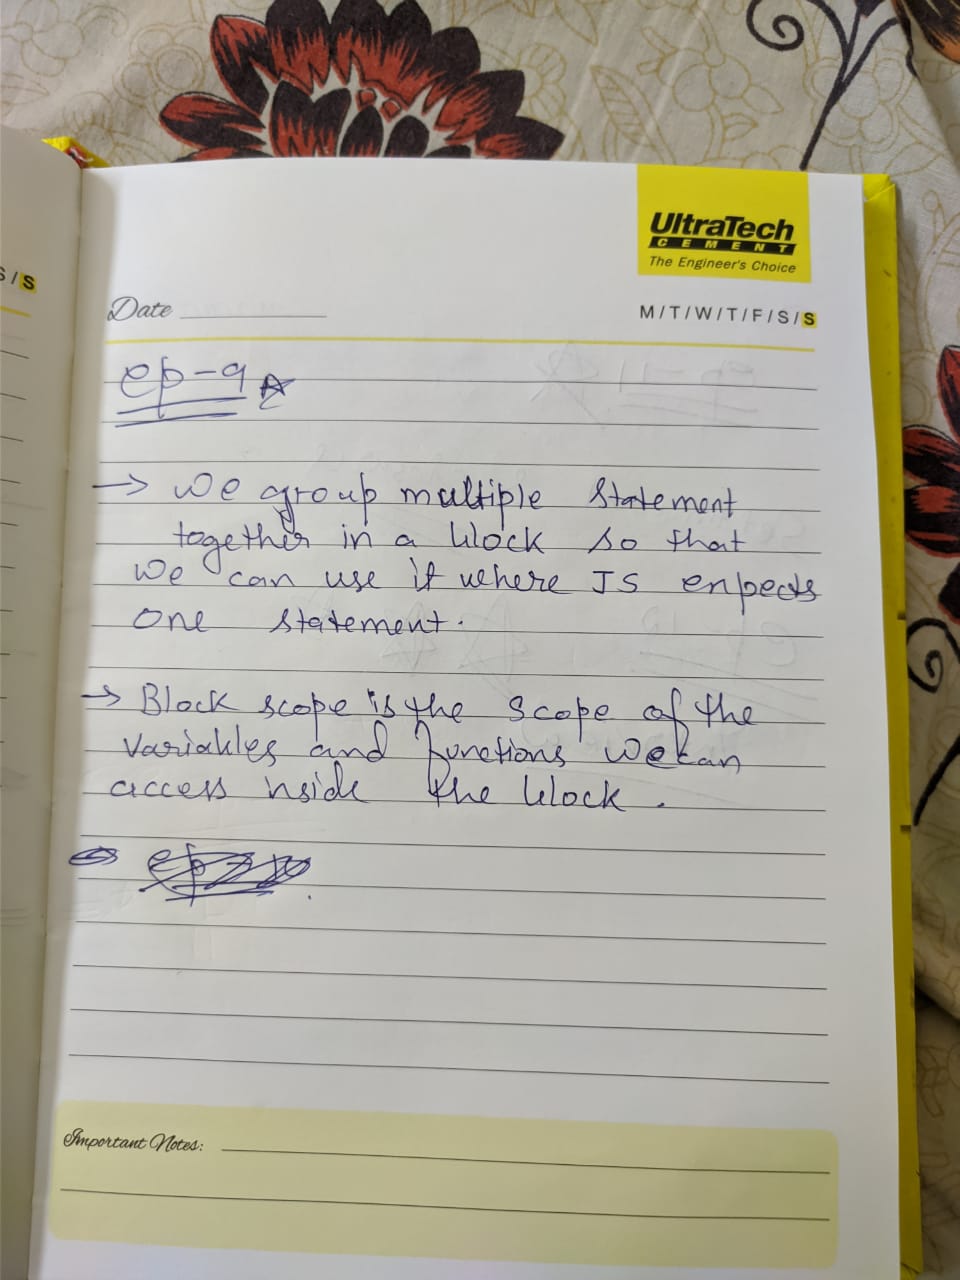 UltraTech
CEMENT
The Engineer's Choice
S/S
Date
M/T/W/T/F/S/S
ep-9
→ We group multiple statement
together in a block so that
we can use it where JS enpects
one statement.
→ Block scope is the scope of the
variables and functions we can
access inside the block.
Important Notes: